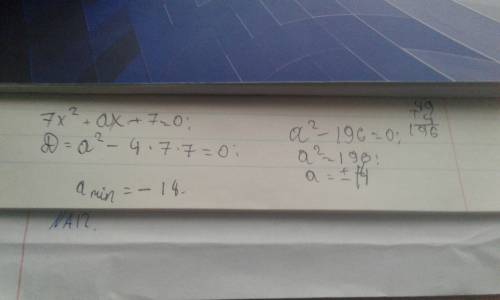 7x² + ax + 7 = 0;
D = a² - 4 · 7 · 7 = 0;
a min = - 14.
a² - 196 = 0;
a² = 196;
a = ± 14
49
4
196
№A12.